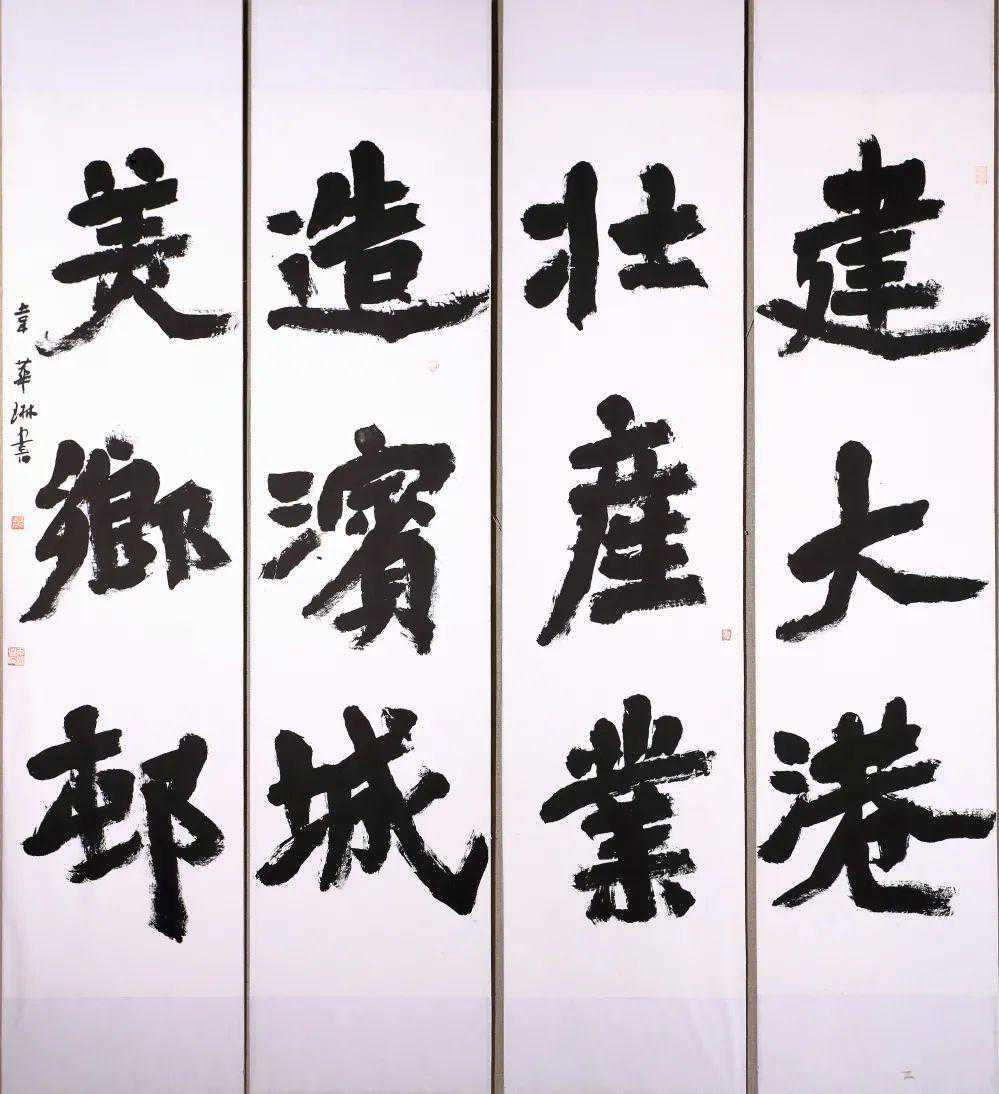 建大港
壯產業
造濱城
美鄉邨
韋華琳書